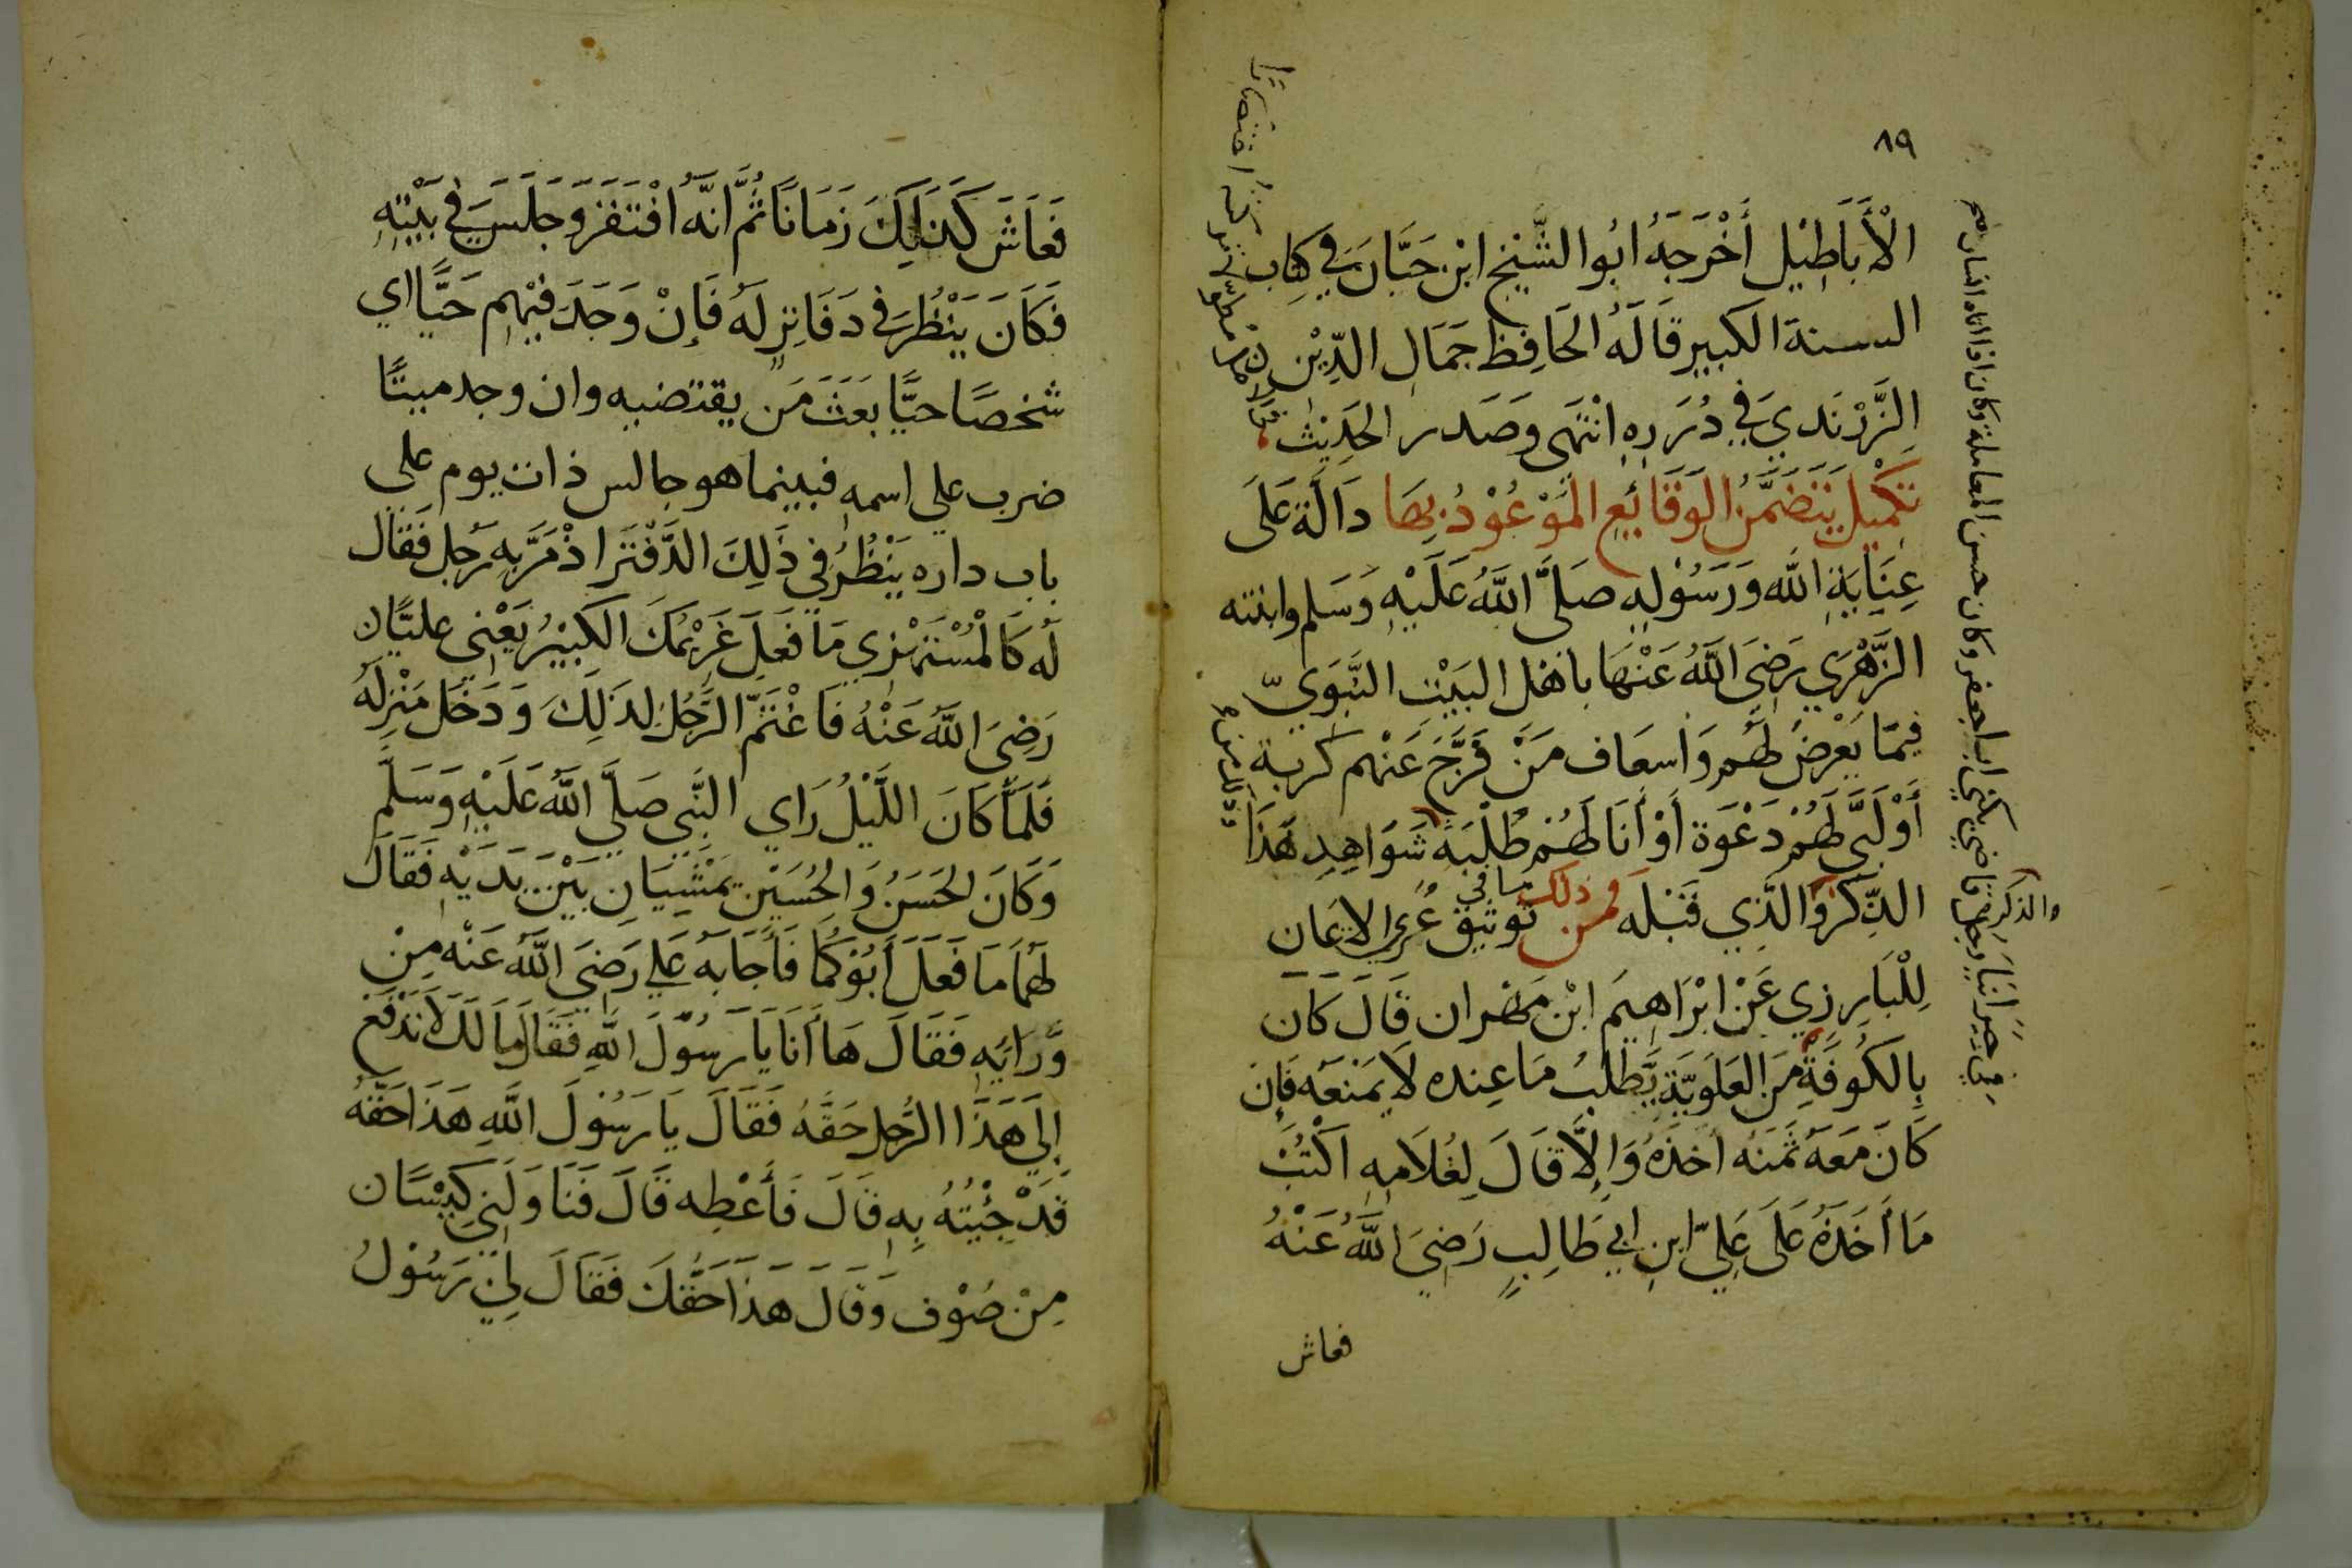 ٨٩
الْأَبَاطِيْل أَخْرَجَهُ ابُو الشَّيْخ ابْن حَيَّان فِي كِتاب
السنة الكبير قَالَهُ الحَافِظ جَمَال الدِّيْن
الزَّرَنْدي فِي دُرَرِه انْتَهى وَصَدر الحَدِيْث
تَكْمِيل يَتَضَمَّنُ الوَقَائِع الْمَوْعُوْدُ بِهَا دَالَّة عَلَى
عِنَايَةِ اللّٰه وَرَسُوْلِهِ صَلَّى اللّٰهُ عَلَيْهِ وَسَلم وابنته
الزَّهْرَي رَضِيَ اللّٰهُ عَنْهَا بِاهْل البَيْت النَّبَوِيّ
فِيمَا يَعْرِضُ لَهُم وَاسعَاف مَنْ فَرَّجَ عَنْهم كربة
أَوْ لَبَّى لَهُمْ دَعْوَة أَوْ أَنَا لَهُمْ طُلْبَةً شَوَاهِدِ هَذَا
الذِّكْر وَالَّذِي قَبْلَه فمن ذلك ما في تَوثِيق عُرى الايمَان
لِلْبَارِزي عَنْ ابْرَاهِيمَ ابْن مَهْران قَالَ كَان
بِالكُوفَةِ مِنَ العَلَوِيَّةِ يَطْلُبُ مَا عِنده لَا يَمْنَعه فَإِن
كَانَ مَعَهُ ثَمَنُه اخذَهُ وَإِلَّا قَالَ لِغُلَامِهِ اكْتُبْ
مَا أَخَذَهُ عَلَى عَلِيّ ابن ابي طَالِبٍ رَضِيَ اللّٰهُ عَنْهُ
فعاش
والذكر
جيراننا قاضي يكنى ابا جعفر وكان حسن المعاملة وكان اذا اتاه انسان
فَعَاشَ كَذَلِكَ زَمَانًا ثُمَّ انَّهُ افْتَقَرَ وَجَلَسَ فِي بَيْتِهِ
فَكَانَ يَنْظُرُ فِي دَفَاتِرِ لَهُ فَإِنْ وَجَدَ فِيْهِم حَيًّا اي
شخصًا حيًّا بَعَثَ مَن يقتضيه وان وجد ميتًا
ضرب علي اسمه فبينما هو جالس ذات يوم على
باب داره يَنْظُرُ فِي ذَلِكَ الدَّفْتَر اذْ مَرَّ بِهِ رَجل فَقَال
لَه كَالْمُسْتَهْزي مَا فَعَلَ غَرِيْمُكَ الكَبِيْرُ يَعْنِي عليًّا
رَضِيَ اللّٰهُ عَنْهُ فَاغْتَمَّ الرَّجُلُ لِذَلِكَ وَدَخَل مَنْزِلَهُ
فَلَمَّا كَانَ اللَّيْلُ رَاي النَّبِي صَلَّي اللّٰهُ عَلَيْهِ وَسَلَّم
وَكَانَ الحَسَنُ وَالحُسَيْن يَمْشِيَانِ بَيْنَ يَدَيْهِ فَقَالَ
لَهُمَا مَا فَعَلَ أَبُوْكُمَا فَأَجَابَهُ عَلي رَضِيَ اللّٰهُ عَنْه مِنْ
وَّرَائِهِ فَقَالَ هَا أَنَا يَا رَسُوْلَ اللّٰهِ فَقَالَ مَا لَكَ لَا تَدْفَع
إِلَى هَذَا الرَّجل حَقَّهُ فَقَالَ يَا رَسُوْلَ اللّٰهِ هَذَا حَقَّهُ
قَدْ جِئْتُهُ بِهِ قَالَ فَأَعْطِه قَالَ فَنَاوَلَنِي كِيسًا
مِنْ صُوْف وَقَالَ هَذَا حَقُّكَ فَقَالَ لِي رَسُوْلُ